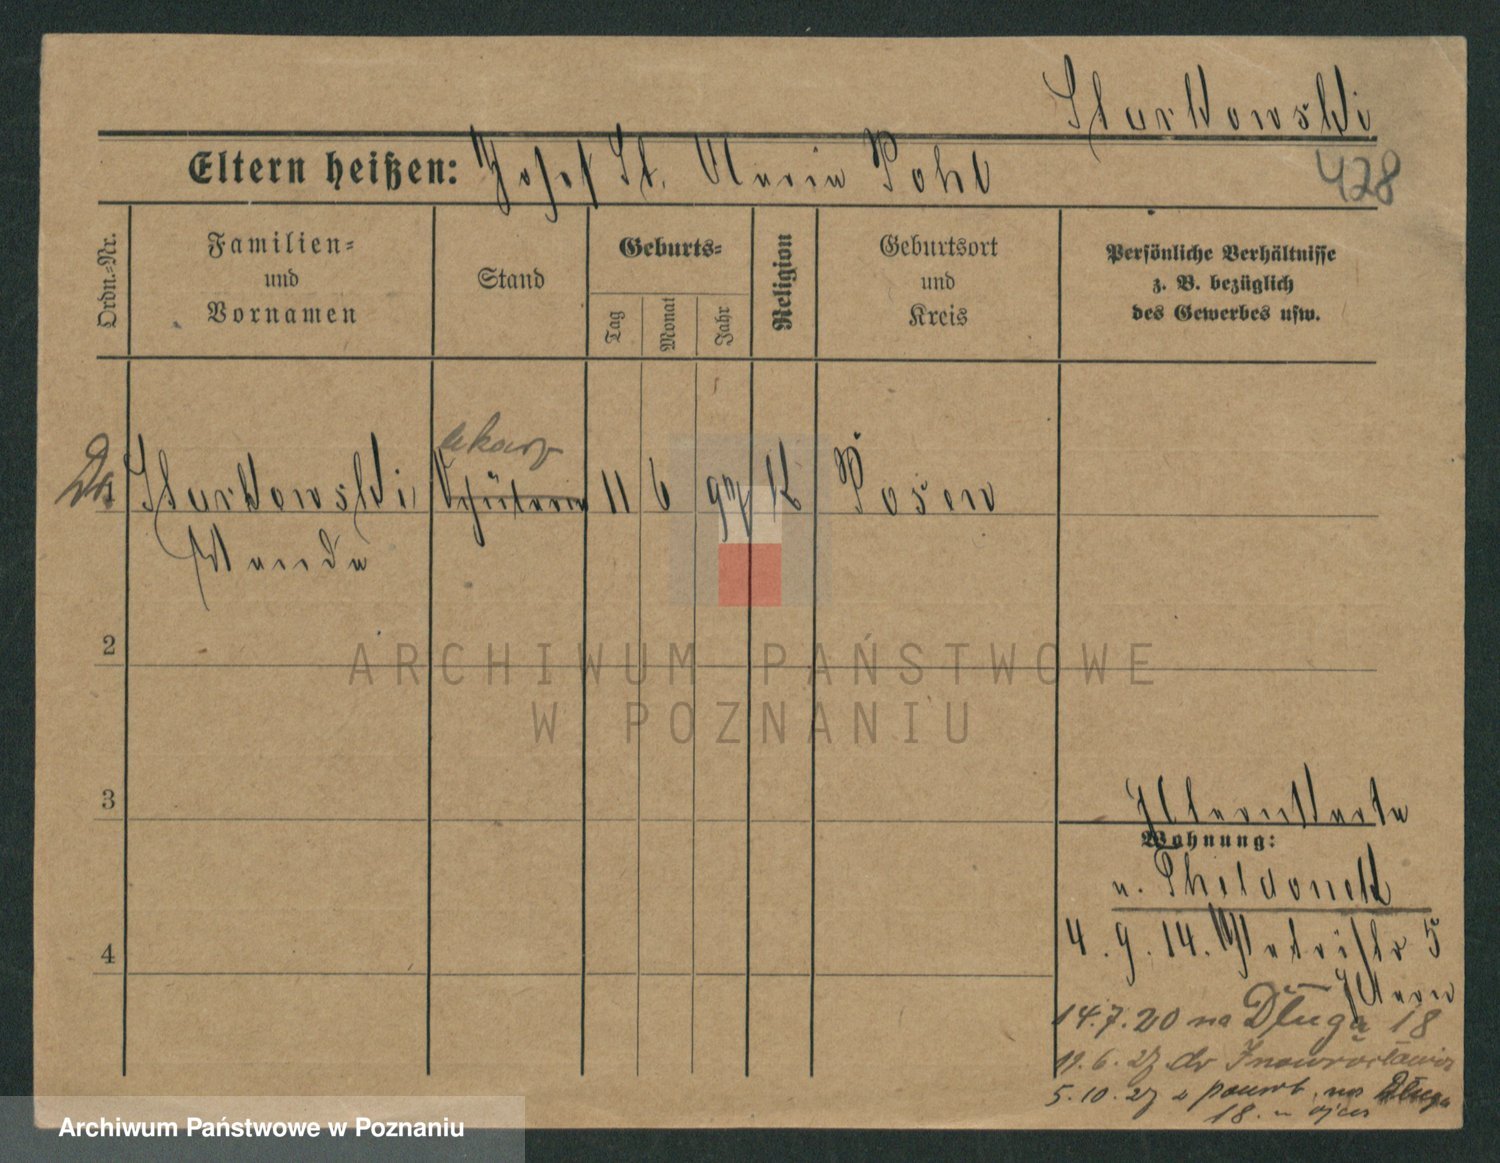 Sturkowski
Eltern heißen: Josef St. Maria Pohl
428
Ordn.=Nr.
Familien=
und
Vornamen
Stand
Geburts=
Tag
Monat
Jahr
Religion
Geburtsort
und
Kreis
Persönliche Verhältnisse
z. B. bezüglich
des Gewerbes usw.
lekarz
Dr. 1 Sturkowski, Schülerin 11 6 97 K Posen
Wanda
2
ARCHIWUM PAŃSTWOWE
W POZNANIU
3
Elternkarte
Wohnung:
4
4.9.14. 5
Eltern
14.7.20 na Długą 18
19.6.27 do Inowrocławia
5.10.27 z powrot. na Długą
18. u ojca
Archiwum Państwowe w Poznaniu